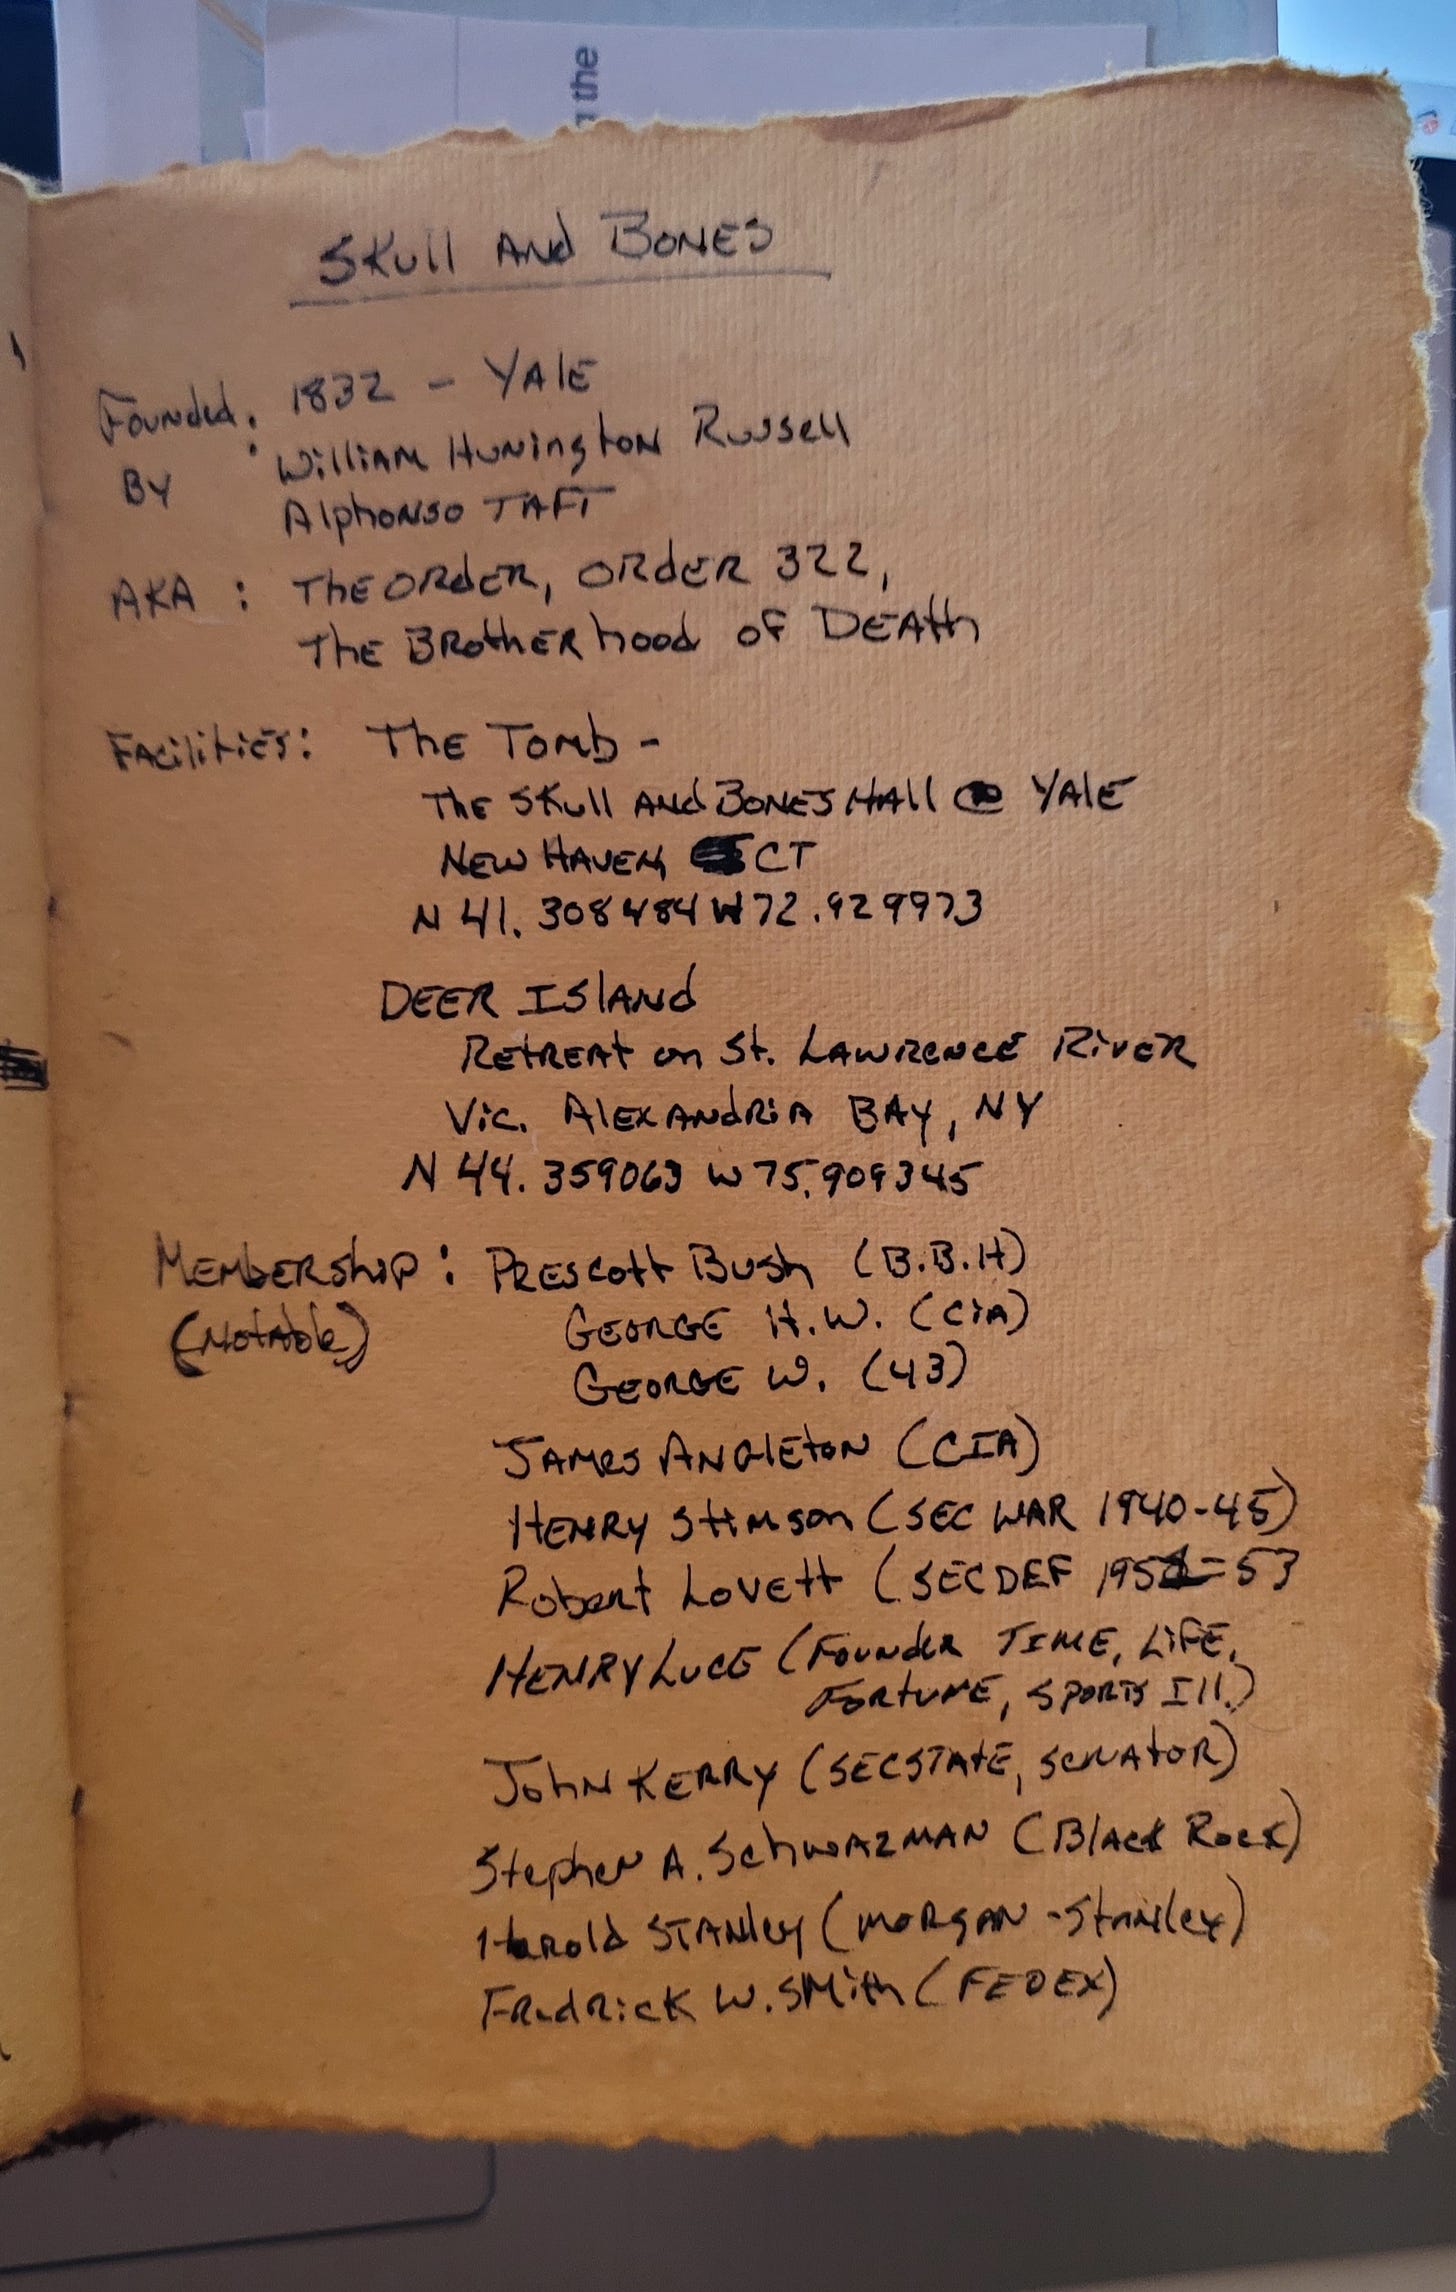 the
Skull And Bones
Founded: 1832 - Yale
By William Hunington Russell
Alphonso TAFT
AKA : The Order, Order 322,
The Brotherhood of Death
Facilities: The Tomb -
The Skull And Bones Hall @ Yale
New Haven, CT
N 41.308484 W 72.929973
Deer Island
Retreat on St. Lawrence River
Vic. Alexandria Bay, NY
N 44.359063 W 75.909345
Membership : Prescott Bush (B.B.H)
(Notable) George H.W. (CIA)
George W. (43)
James Angleton (CIA)
Henry Stimson (SEC WAR 1940-45)
Robert Lovett (SECDEF 1951-53
Henry Luce (Founder TIME, LIFE,
Fortune, Sports Ill.)
John Kerry (SECSTATE, Senator)
Stephen A. Schwazman (Black Rock)
Harold Stanley (Morgan-Stanley)
Fredrick W. Smith (FEDEX)